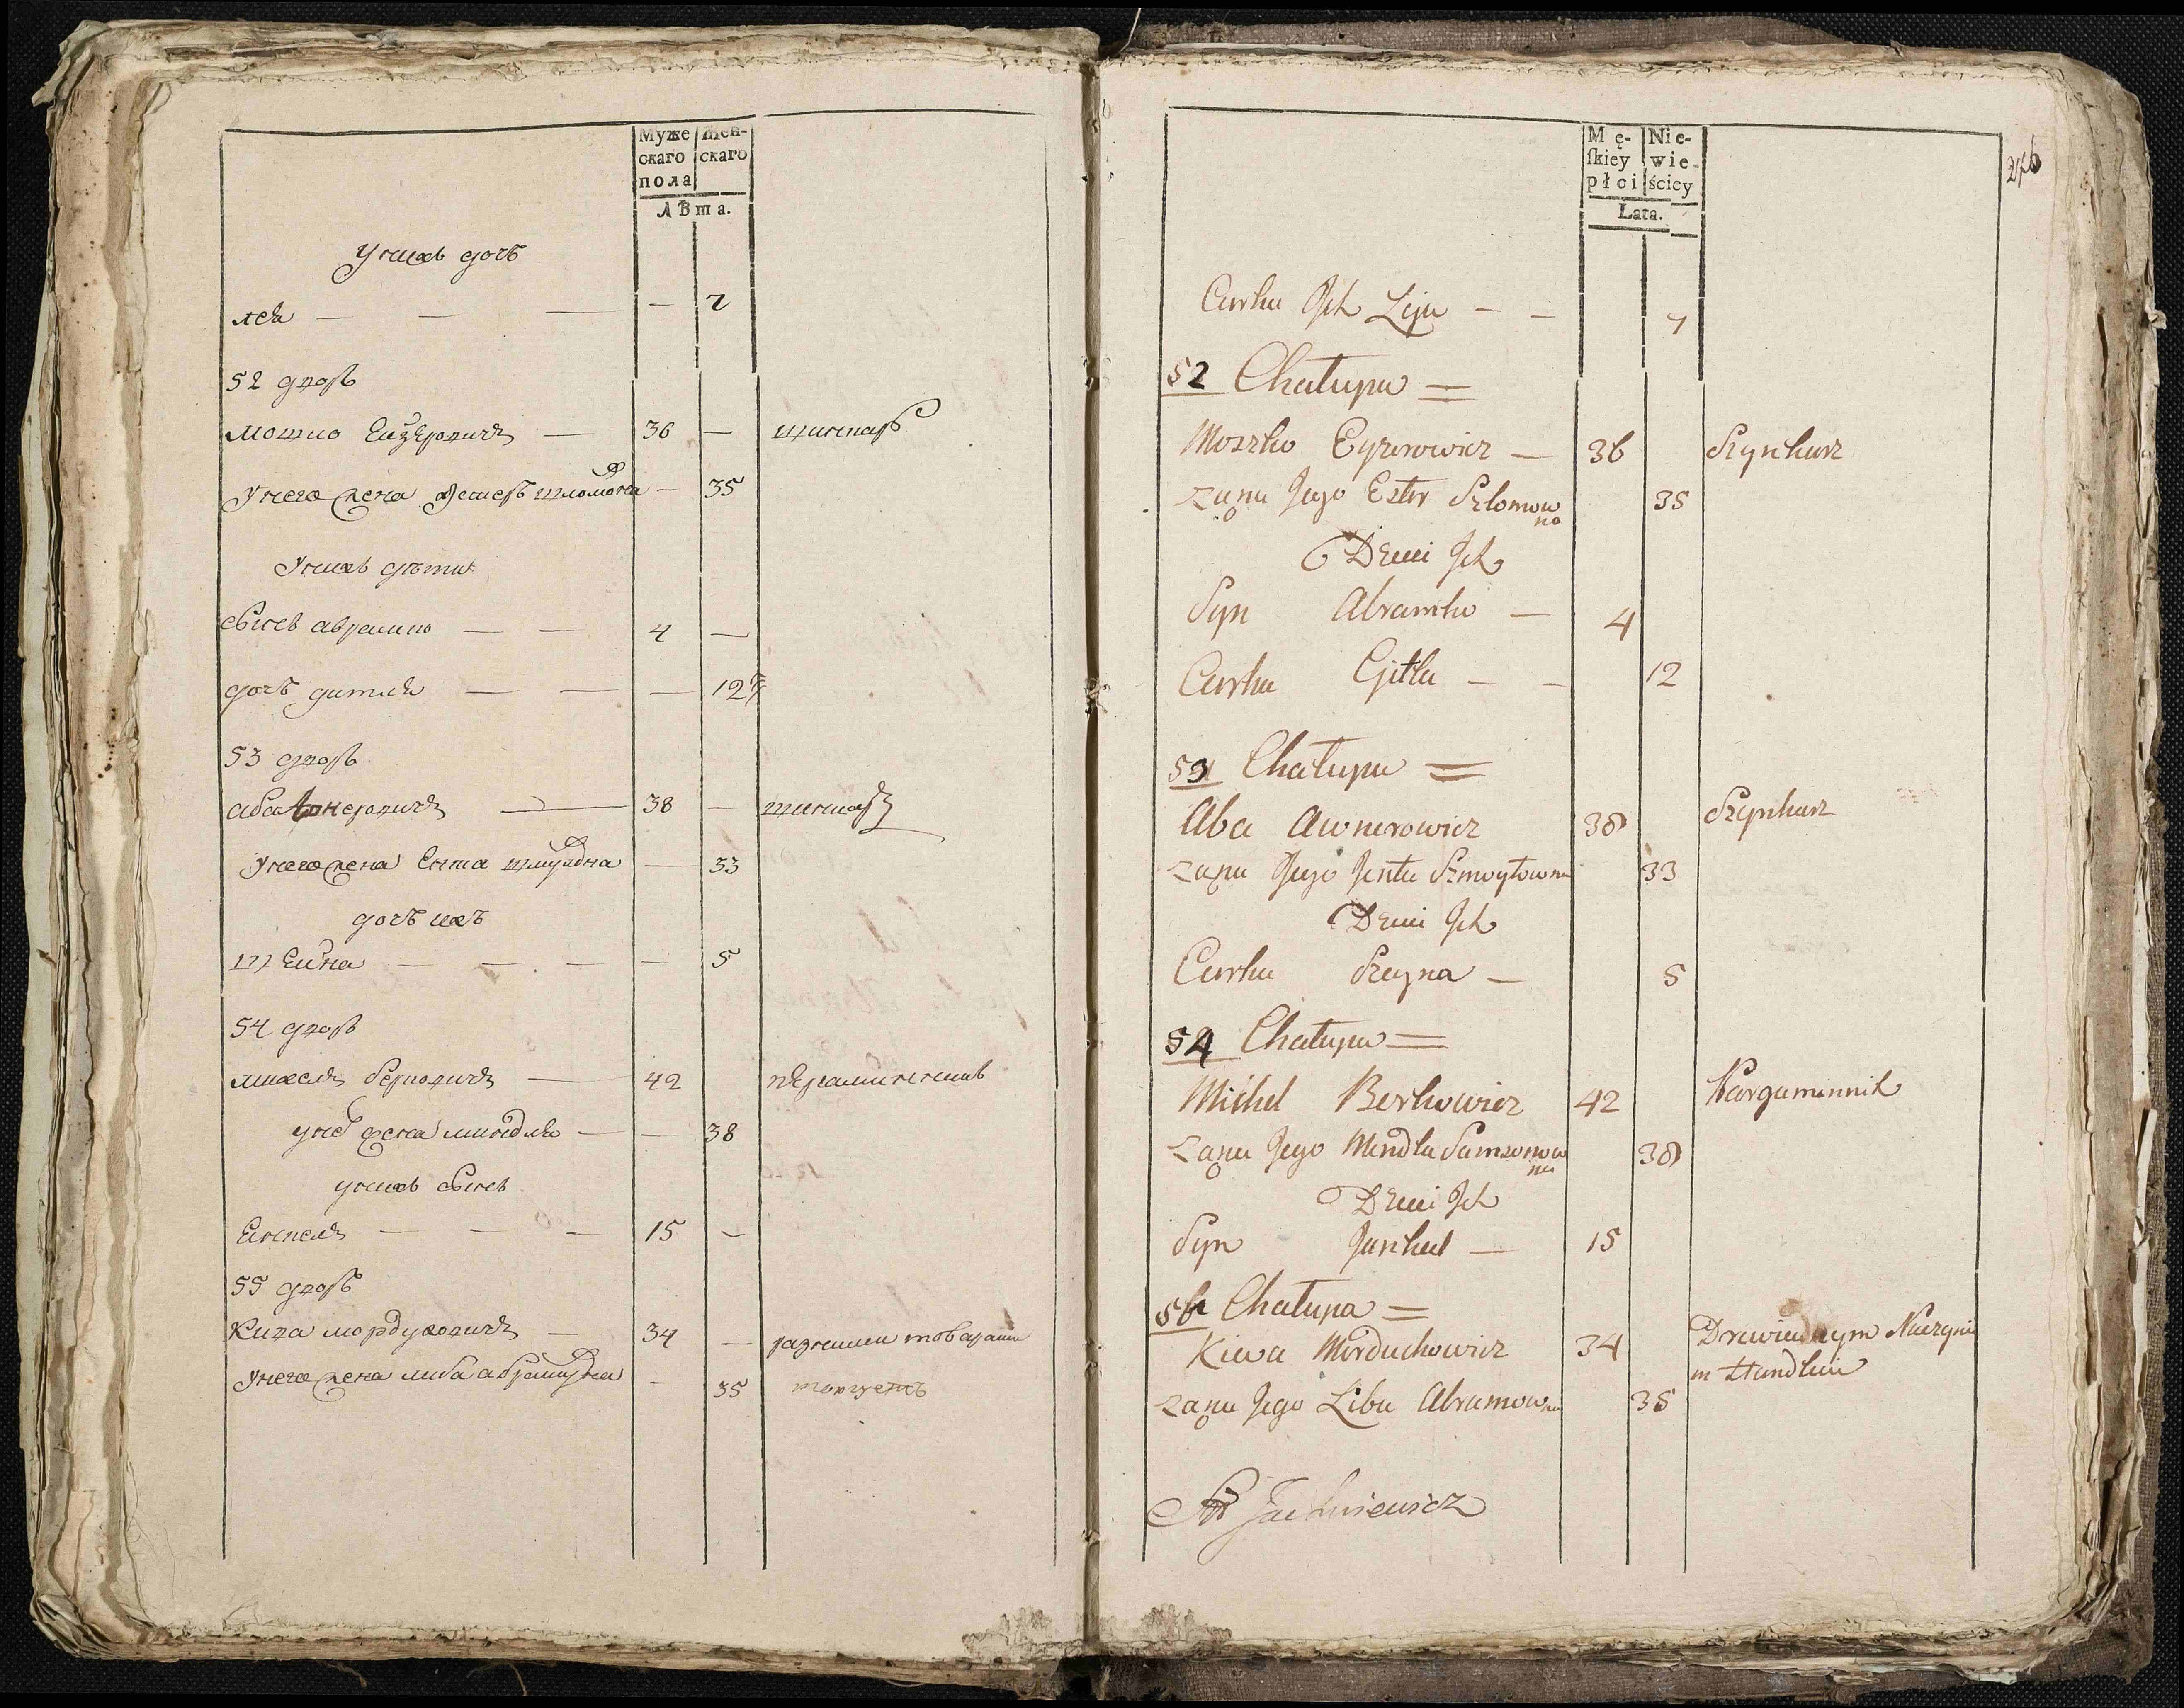 Муже скаго пола
Жен-скаго
Лѣта.
У нихъ дочь
Лея — — — — 7
52 дворъ
Мошко Ейзеровичъ — 36 — шинкаръ
У него жена Естеръ Шломовна — 35
У нихъ дѣти
сынъ Абрамко — — 4 —
дочь Гитля — — — 12
53 дворъ
Аба Авнеровичъ — 38 — шинкаръ
У него жена Ента Шмуловна — 33
дочь ихъ
Шейна — — — — 5
54 дворъ
Михель Берковичъ — 42
у него жена Миндля — — 38
у нихъ сынъ
— — — 15 —
55 дворъ
Кива Мордуховичъ — 34 — разними товарами
У него жена Либа Абрамовна — 35 торгуетъ
Mę-ſkiey płci
Nie-wie-ściey
Lata.
Curka Jch Lija — — 7
52 Chałupa =
Moszko Eyzerowicz — 36 Szynkarz
Żona Jego Ester Szlomowna 35
Dzieci Jch
Syn Abramko — 4
Curka Gitla — — 12
53 Chałupa =
Aba Awnerowicz 38 Szynkarz
Żona Jego Jenta Szmoyłowna 33
Dzieci Jch
Curka Szeyna — 5
54 Chałupa =
Michel Berkowicz 42 Pargaminnik
Żona Jego Mindla Samsonowna 38
Dzieci Jch
Syn Jankiel — 15
Chałupa =
Kiwa Morduchowicz 34 Drewiennym Naczyniem Handluie
Żona Jego Liba Abramowna 35